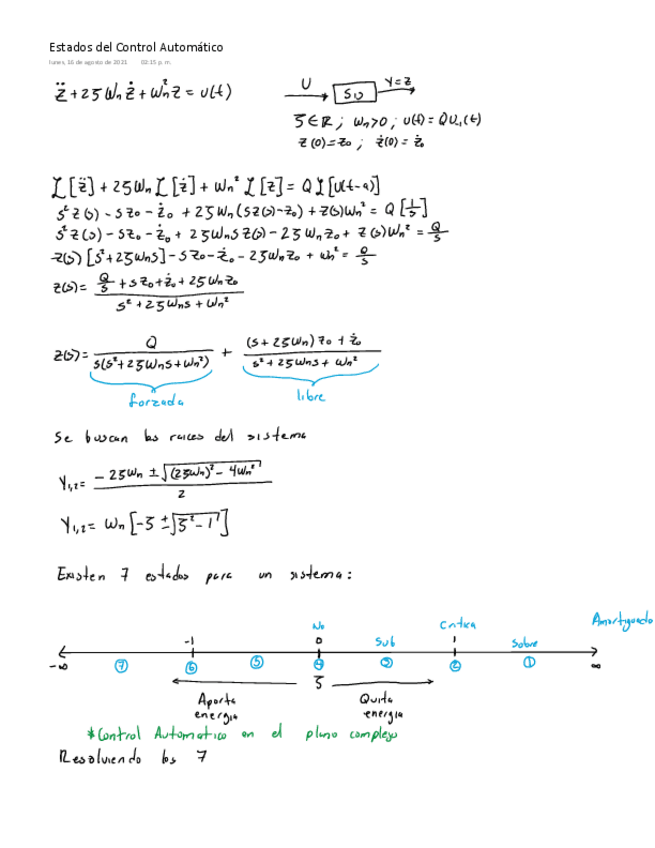 Estados del Control Automático
lunes, 16 de agosto de 2021 02:15 p. m.
z̈ + 2ζWnż + Wn²z = u(t)
U → [SLD] → Y=Z
ζ∈ℝ ; Wn>0 ; u(t) = QU₋₁(t)
z(0)=z₀ ; ż(0)=ż₀
ℒ[z̈] + 2ζWn ℒ[ż] + Wn² ℒ[z] = Q ℒ[u(t-a)]
s²z(s) - sz₀ - ż₀ + 2ζWn(sz(s)-z₀) + z(s)Wn² = Q[1/s]
s²z(s) - sz₀ - ż₀ + 2ζWnsz(s) - 2ζWnz₀ + z(s)Wn² = Q/s
z(s)[s²+2ζWns] - sz₀ - ż₀ - 2ζWnz₀ + Wn² = Q/s
z(s) = (Q/s + sz₀ + ż₀ + 2ζWnz₀) / (s² + 2ζWns + Wn²)
z(s) = Q / (s(s²+2ζWns+Wn²)) + ((s+2ζWn)z₀ + ż₀) / (s²+2ζWns+Wn²)
forzada libre
Se buscan las raices del sistema
Y₁,₂ = (-2ζWn ± √((2ζWn)² - 4Wn²)) / 2
Y₁,₂ = Wn[-ζ ± √(ζ²-1)]
Existen 7 estados para un sistema:
No Critica Amortiguado
-1 0 Sub 1 Sobre
-∞ ⑦ ⑥ ⑤ ④ ③ ② ① ∞
ζ
Aporta Quita
energia energia
*Control Automatico en el plano complejo
Resolviendo los 7